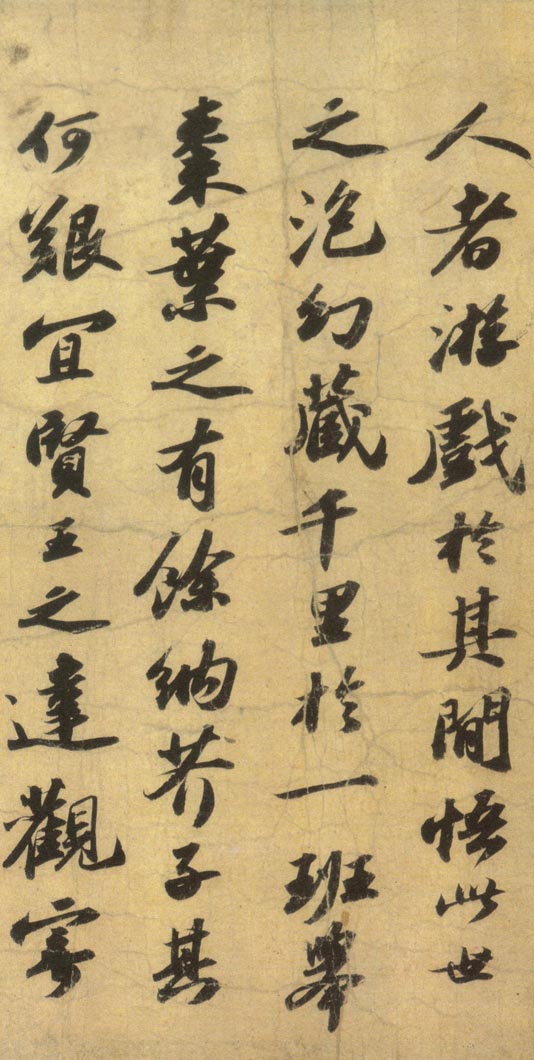 人者游戲於其閒悟此世
之泡幻藏千里於一班舉
棗葉之有餘納芥子其
何艱宜賢王之達觀寄